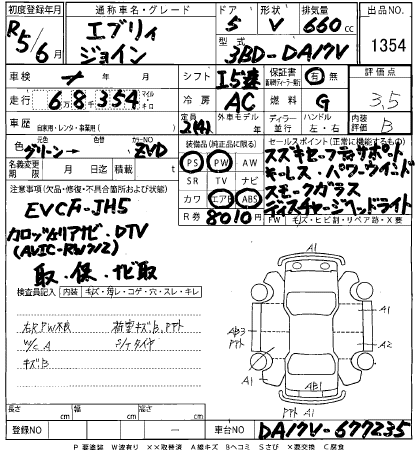 初度登録年月 通称車名・グレード ドア 形状 排気量 出品NO
R5/6月 エブリィ ジョイン 5 V 660cc 1354
型式 3BD-DA17V
車検 年 月 シフト I5速 保証書 有 無 評価点
走行 68,354 マイル キロ 冷房 AC 燃料 G 3.5
車歴 自家用・レンタ・事業用( ) 定員 2(4)人 外車モデル年 ディーラー 並行 ハンドル 左・右 内装評価 B
色 グリーン→ カラーNO ZVD 装備品(純正品に限る) セールスポイント(正常に機能するもの)
名義変更期限 月 日迄 積載 PS PW AW スズキセーフティサポート
注意事項(欠品・修復・不具合箇所および改造) SR TV ナビ キーレス・パワーウインド
EVCF-JH5 カワ エアB ABS スモークガラス
カロッツェリアナビ・DTV R券 8010円 ディスチャージヘッドライト
(AVIC-RW712) FW キズ・ヒビ割・リペア跡・X要
取・保・ナビ取
検査員記入 内装 キズ・汚レ・コゲ・穴・スレ・キレ
右R PW不良 荷室キズB,アト
W/C A S/Tタイヤ
キズB
A1
A1
AB3 アト A2
A1 A1
AB1
アト A1
長さ cm 幅 cm 高さ cm
登録NO 車台NO DA17V-677235
P 要塗装 W波有り ××取替済 A線キズ Bヘコミ Sさび ×要交換 C腐食